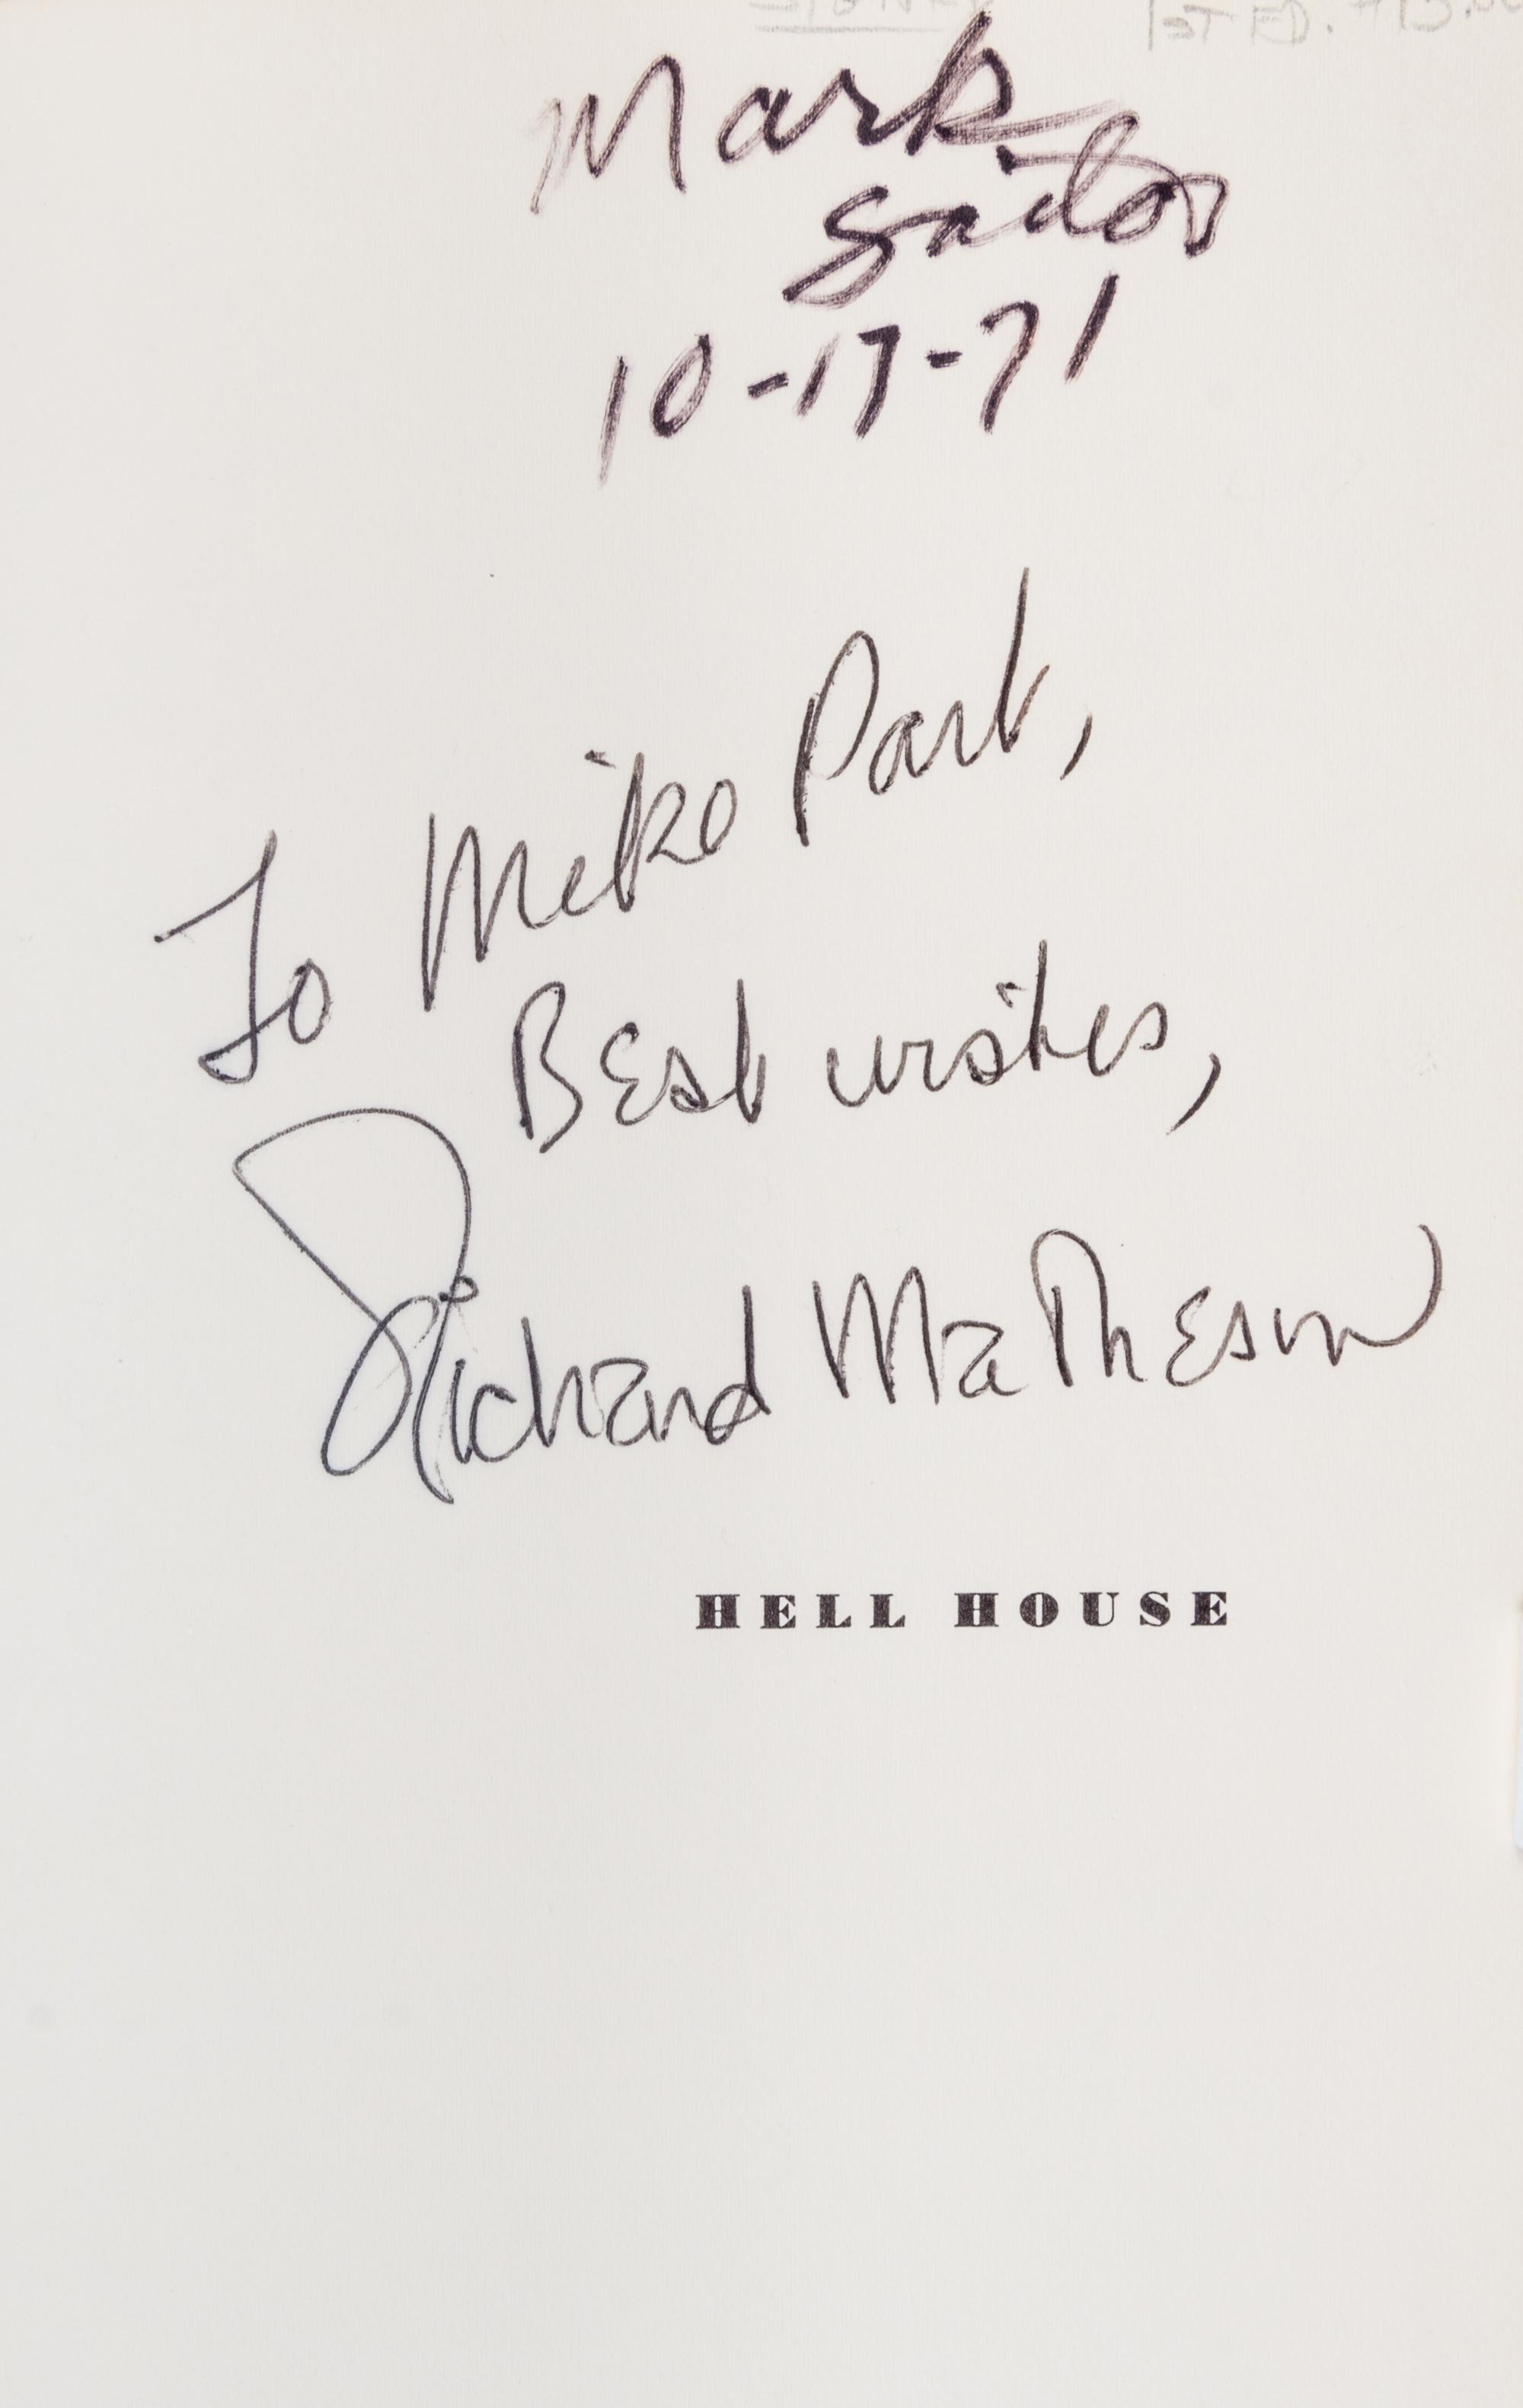 1ST ED.
Mark
10-17-71
To Mike Park,
Best wishes,
Richard Matheson
HELL HOUSE